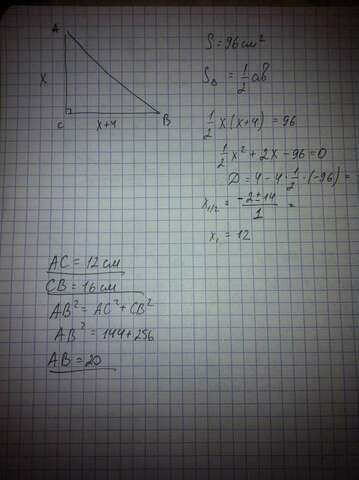 A
x
C
x+4
B
S=96см²
S△ = 1/2 ab
1/2 x(x+4) = 96
1/2 x² + 2x - 96 = 0
D = 4 - 4 · 1/2 · (-96) =
x1/2 = (-2 ± 14)/1 =
x₁ = 12
AC = 12 см
CB = 16 см
AB² = AC² + CB²
AB² = 144 + 256
AB = 20